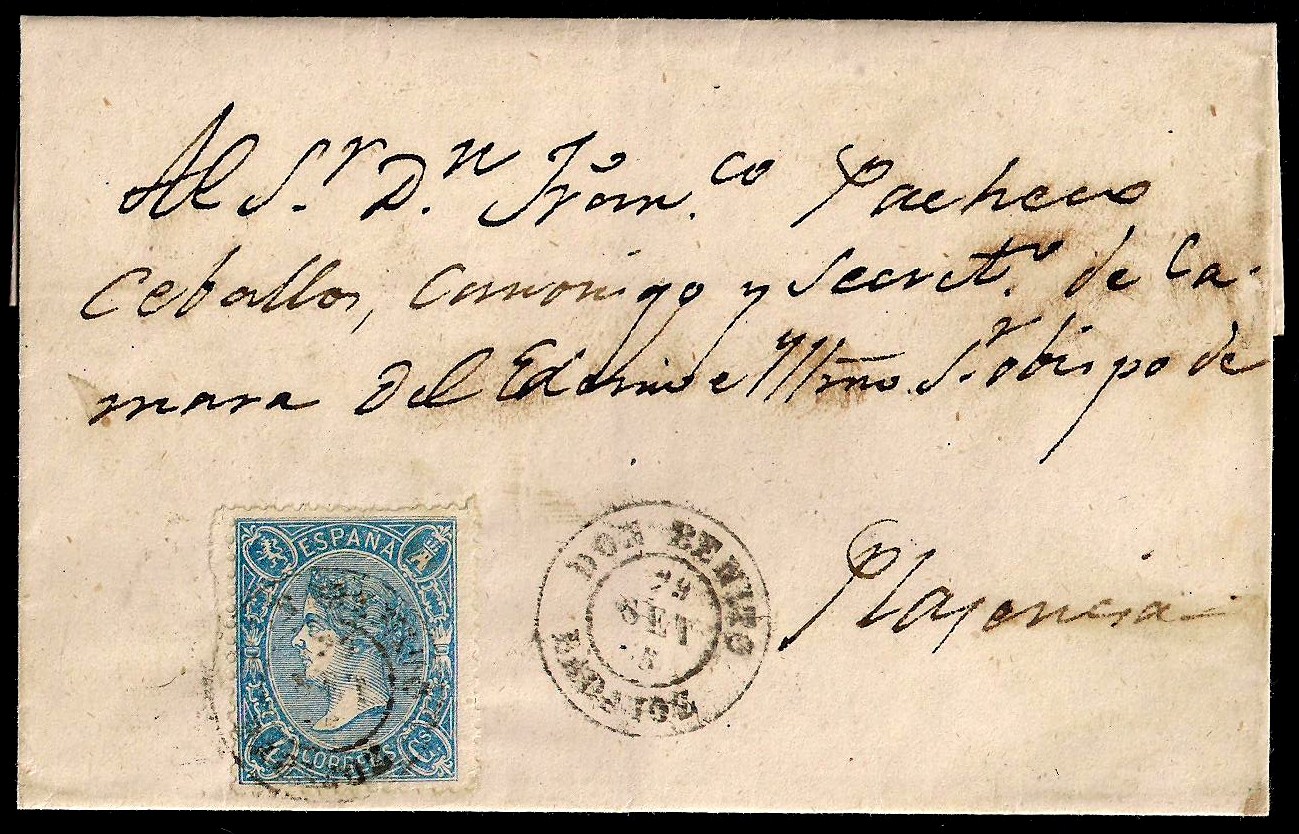 Al S.r D.n Fran.co Pacheco
Ceballos, Canonigo y Secret.o de Ca-
mara del Edsmo e Yllmo. S.r obispo de
Plasencia
ESPAÑA
CORREOS
4 Cs
DON BENITO
29
SET